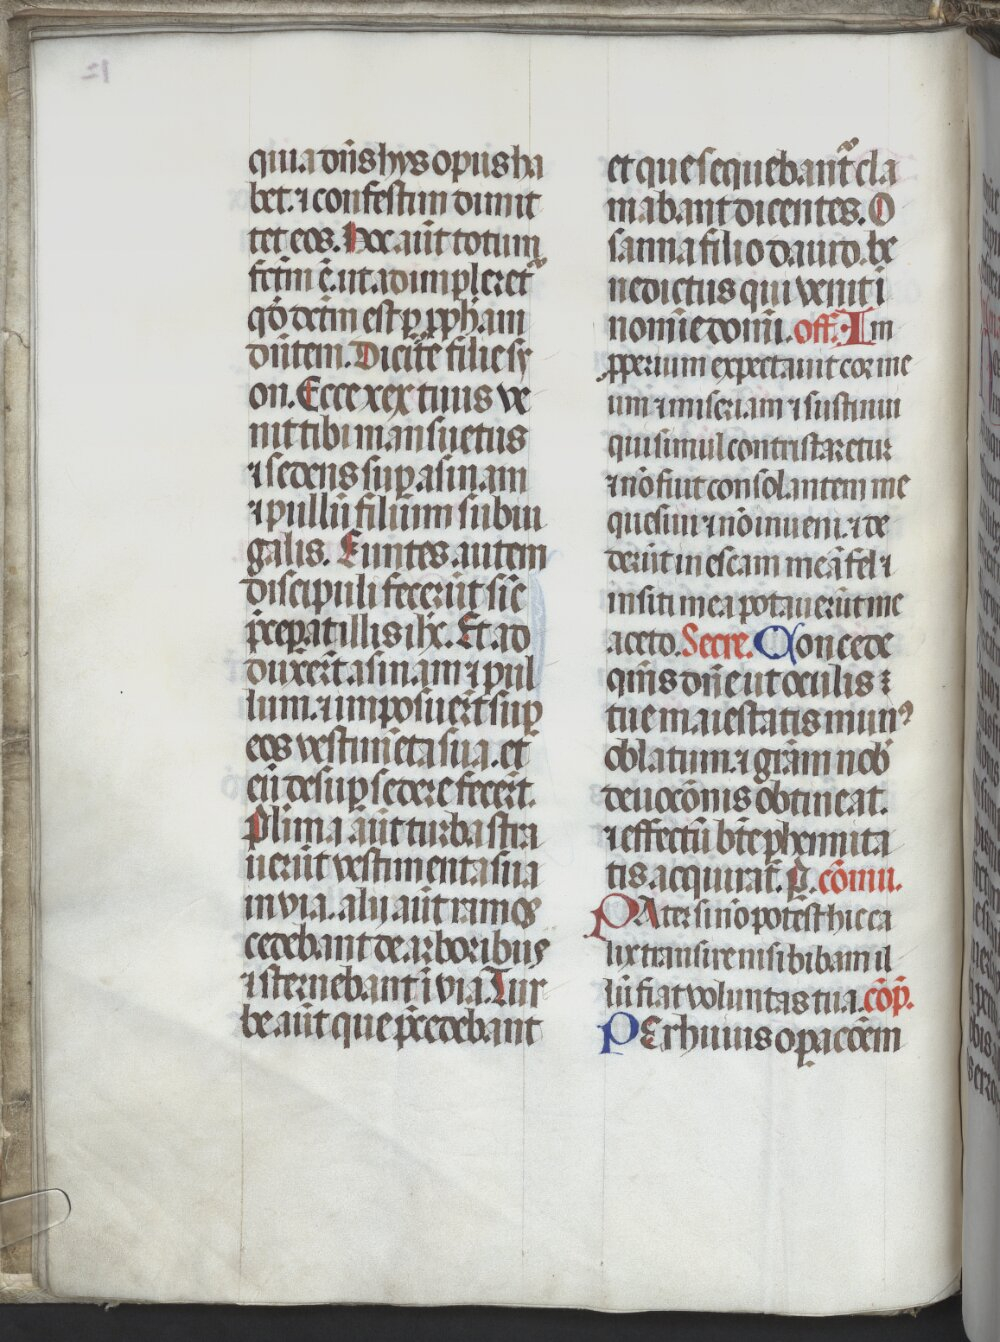 quia dñs hys opus ha
bet. ⁊ confestim dimit
tet eos. Hoc aūt totum
fc̄m ē. ut adimpleret᷑
qđ dc̄m est ꝑ ꝓph̄am
dn̄tem. Dicite filie sy
on. Ecce rex tuus ve
nit tibi mansuetus
⁊ sedens suꝑ asinam
⁊ pullū filium subiu
galis. Euntes autem
discipuli fecerūt sic̄
p̄cepat illis ih̄c. Et ad
duxer̄t asinam ⁊ pul
lum. ⁊ imposuer̄t suꝑ
eos vestimēta sua. et
eū desuꝑ sedere fecer̄t.
Plima aūt turba stra
uerūt vestimenta sua
in via. alii aūt ramos
cedebant de arboribus
⁊ sternebant ī via. Tur
be aūt que p̄cedebant
et que sequebant᷑ cla
mabant dicentes. O
sanna filio dauid. be
nedictus qui venit ī
nomīe domī. off. Im
ꝓperium expectauit cor me
um ⁊ miseriam ⁊ sustinui
qui simul contristaretur
⁊ nō fuit consolantem me
quesiui ⁊ nō inueni. ⁊ de
derūt in escam meā fel ⁊
in siti mea potauerūt me
aceto. Secre. Concede
qm̄s dn̄e ut oculis
tue maiestatis munꝰ
oblatum. ⁊ grām nob̄
deuoc̄onis obtineat.
⁊ effectū bt̄e phennita
tis acquirat̄. P̄. cōmu.
PAter si nō potest hic ca
lix transire nisi bibam il
lū fiat voluntas tua. cōp̄.
PEr huius opac̄oem